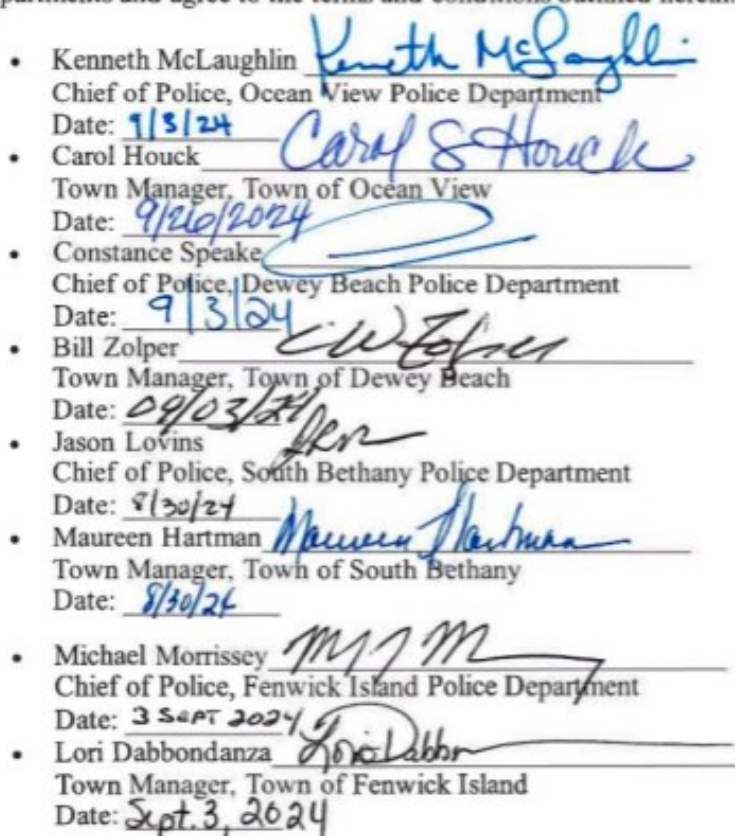 partments and agree to the terms and conditions outlined herein.
• Kenneth McLaughlin Kenneth McLaughlin
Chief of Police, Ocean View Police Department
Date: 9/3/24
• Carol Houck Carol S Houck
Town Manager, Town of Ocean View
Date: 9/26/2024
• Constance Speake
Chief of Police, Dewey Beach Police Department
Date: 9/3/24
• Bill Zolper CW Zolper
Town Manager, Town of Dewey Beach
Date: 09/03/24
• Jason Lovins
Chief of Police, South Bethany Police Department
Date: 8/30/24
• Maureen Hartman Maureen Hartman
Town Manager, Town of South Bethany
Date: 8/30/24
• Michael Morrissey
Chief of Police, Fenwick Island Police Department
Date: 3 SEPT 2024
• Lori Dabbondanza
Town Manager, Town of Fenwick Island
Date: Sept. 3, 2024